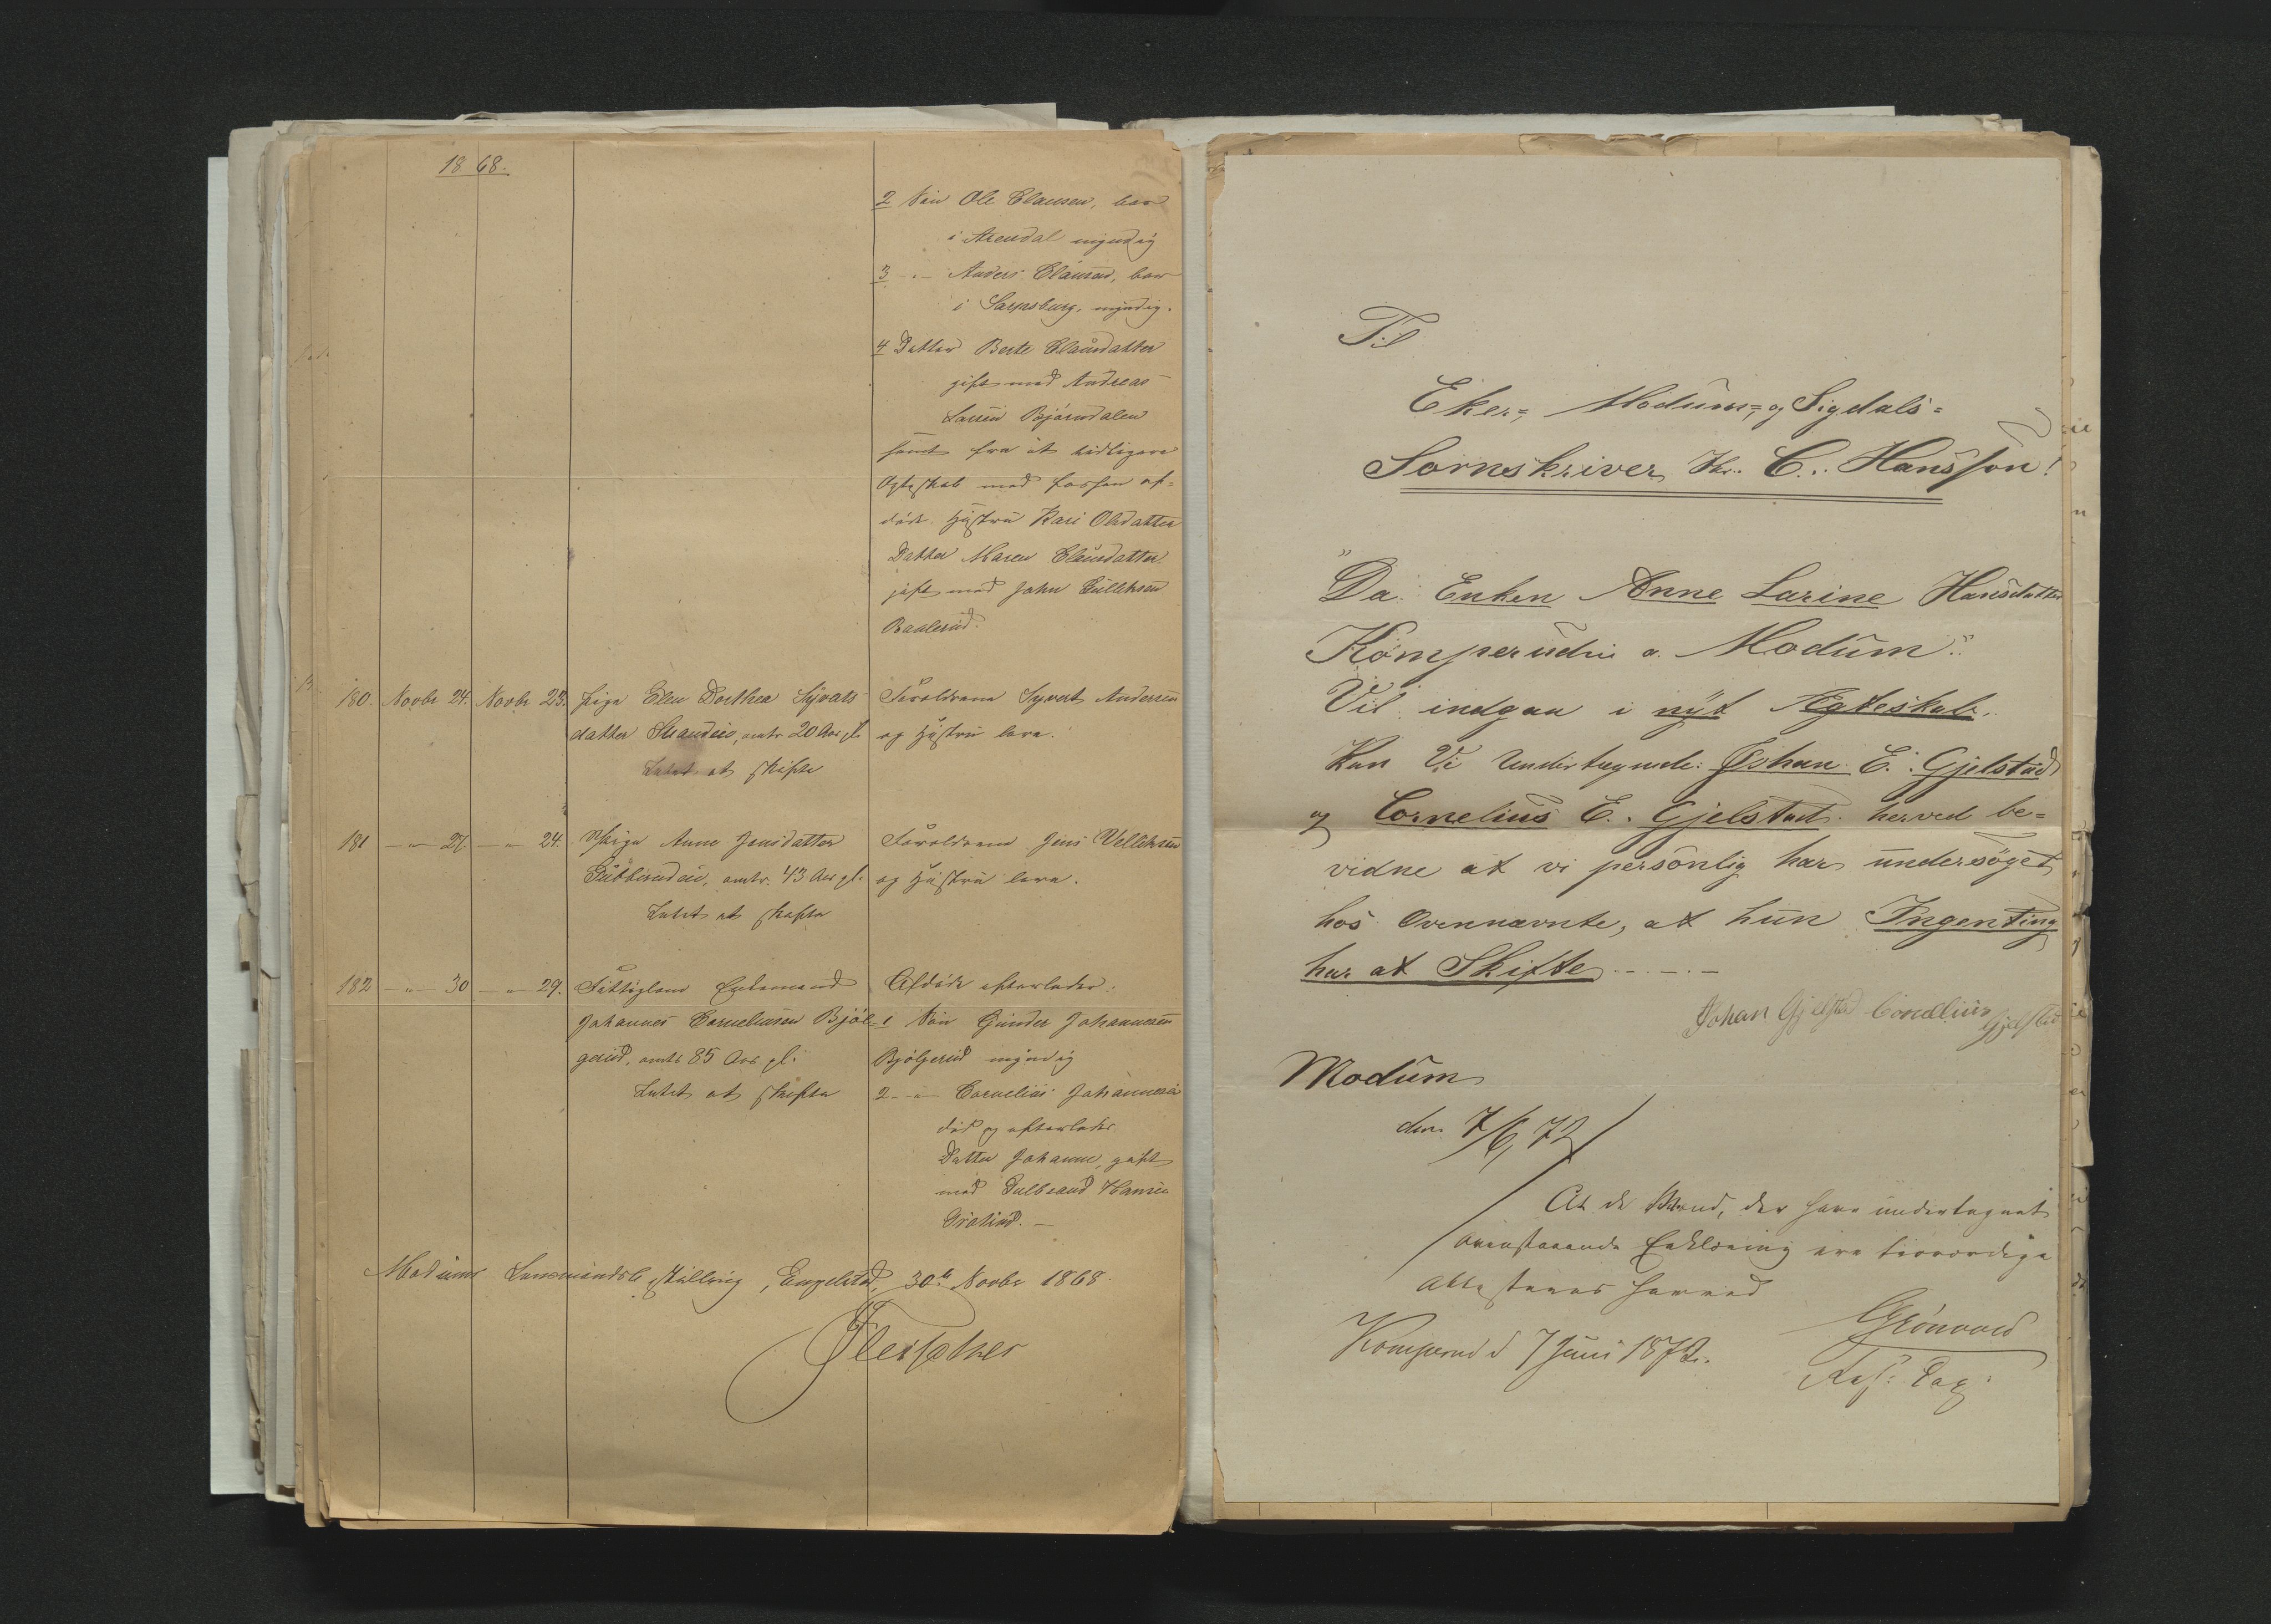 1868.
2 Søn Ole Clausen, boer
i Arendal myndig
3 " Anders Clausen, boer
i Sarpsborg, myndig.
4 Datter Berte Clausdatter
gift med Andreas
Larsen Bjørndalen
samt fra et tidligere
Ægteskab med forhen af-
døde Hustru Kari Olsdatter
Datter Maren Clausdatter
gift med John Gulliksen
Baalerud.
180. Novbr 24. Novbr 23. Pige Elen Dorthea Syverts- Forældrene Syvert Andersen
datter, omtr 20 Aar gl. og Hustru leve.
Intet at skifte
181 — " — 27 — " — 24. Pige Anne Jensdatter Forældrene Jens Vellesen
omtr. 43 Aar gl. og Hustru leve.
Intet at skifte
182 — " — 30 — " — 29. Fattiglem Enkemand Afdøde efterlader:
Johannes Corneliusen Bjøl- 1 Søn Gunder Johannesen
gerud, omtr 85 Aar gl. Bjølgerud myndig
Intet at skifte 2 — " — Cornelius Johannesen
død og efterlader
Datter Johanne, gift
med Gulbrand Hansen
Modums Lensmandsbestilling, Engelstad, 30te Novbr 1868.
Til
Eker-, Modum-, og Sigdals-
Sornskriver Hr. C. Hansson!
"Da Enken Anne Larine Hansdatter
Komperudeie a. Modum"
Vil indgaa i nyt Ægteskab,
Kan Vi Undertegnede: Johan E. Gjelstad
og Cornelius E. Gjelstad. herved be-
vidne at vi personlig har undersøget
hos Ovennævnte, at hun Ingenting
har at Skifte - - . -
Johan Gjelstad Cornelius Gjelstad
Modum
den 7/6, 72
At de Mænd, der have undertegnet
ovenstaaende Erklæring ere troværdige
attesteres herved
Komperud d 7 Juni 1872. Grönvold